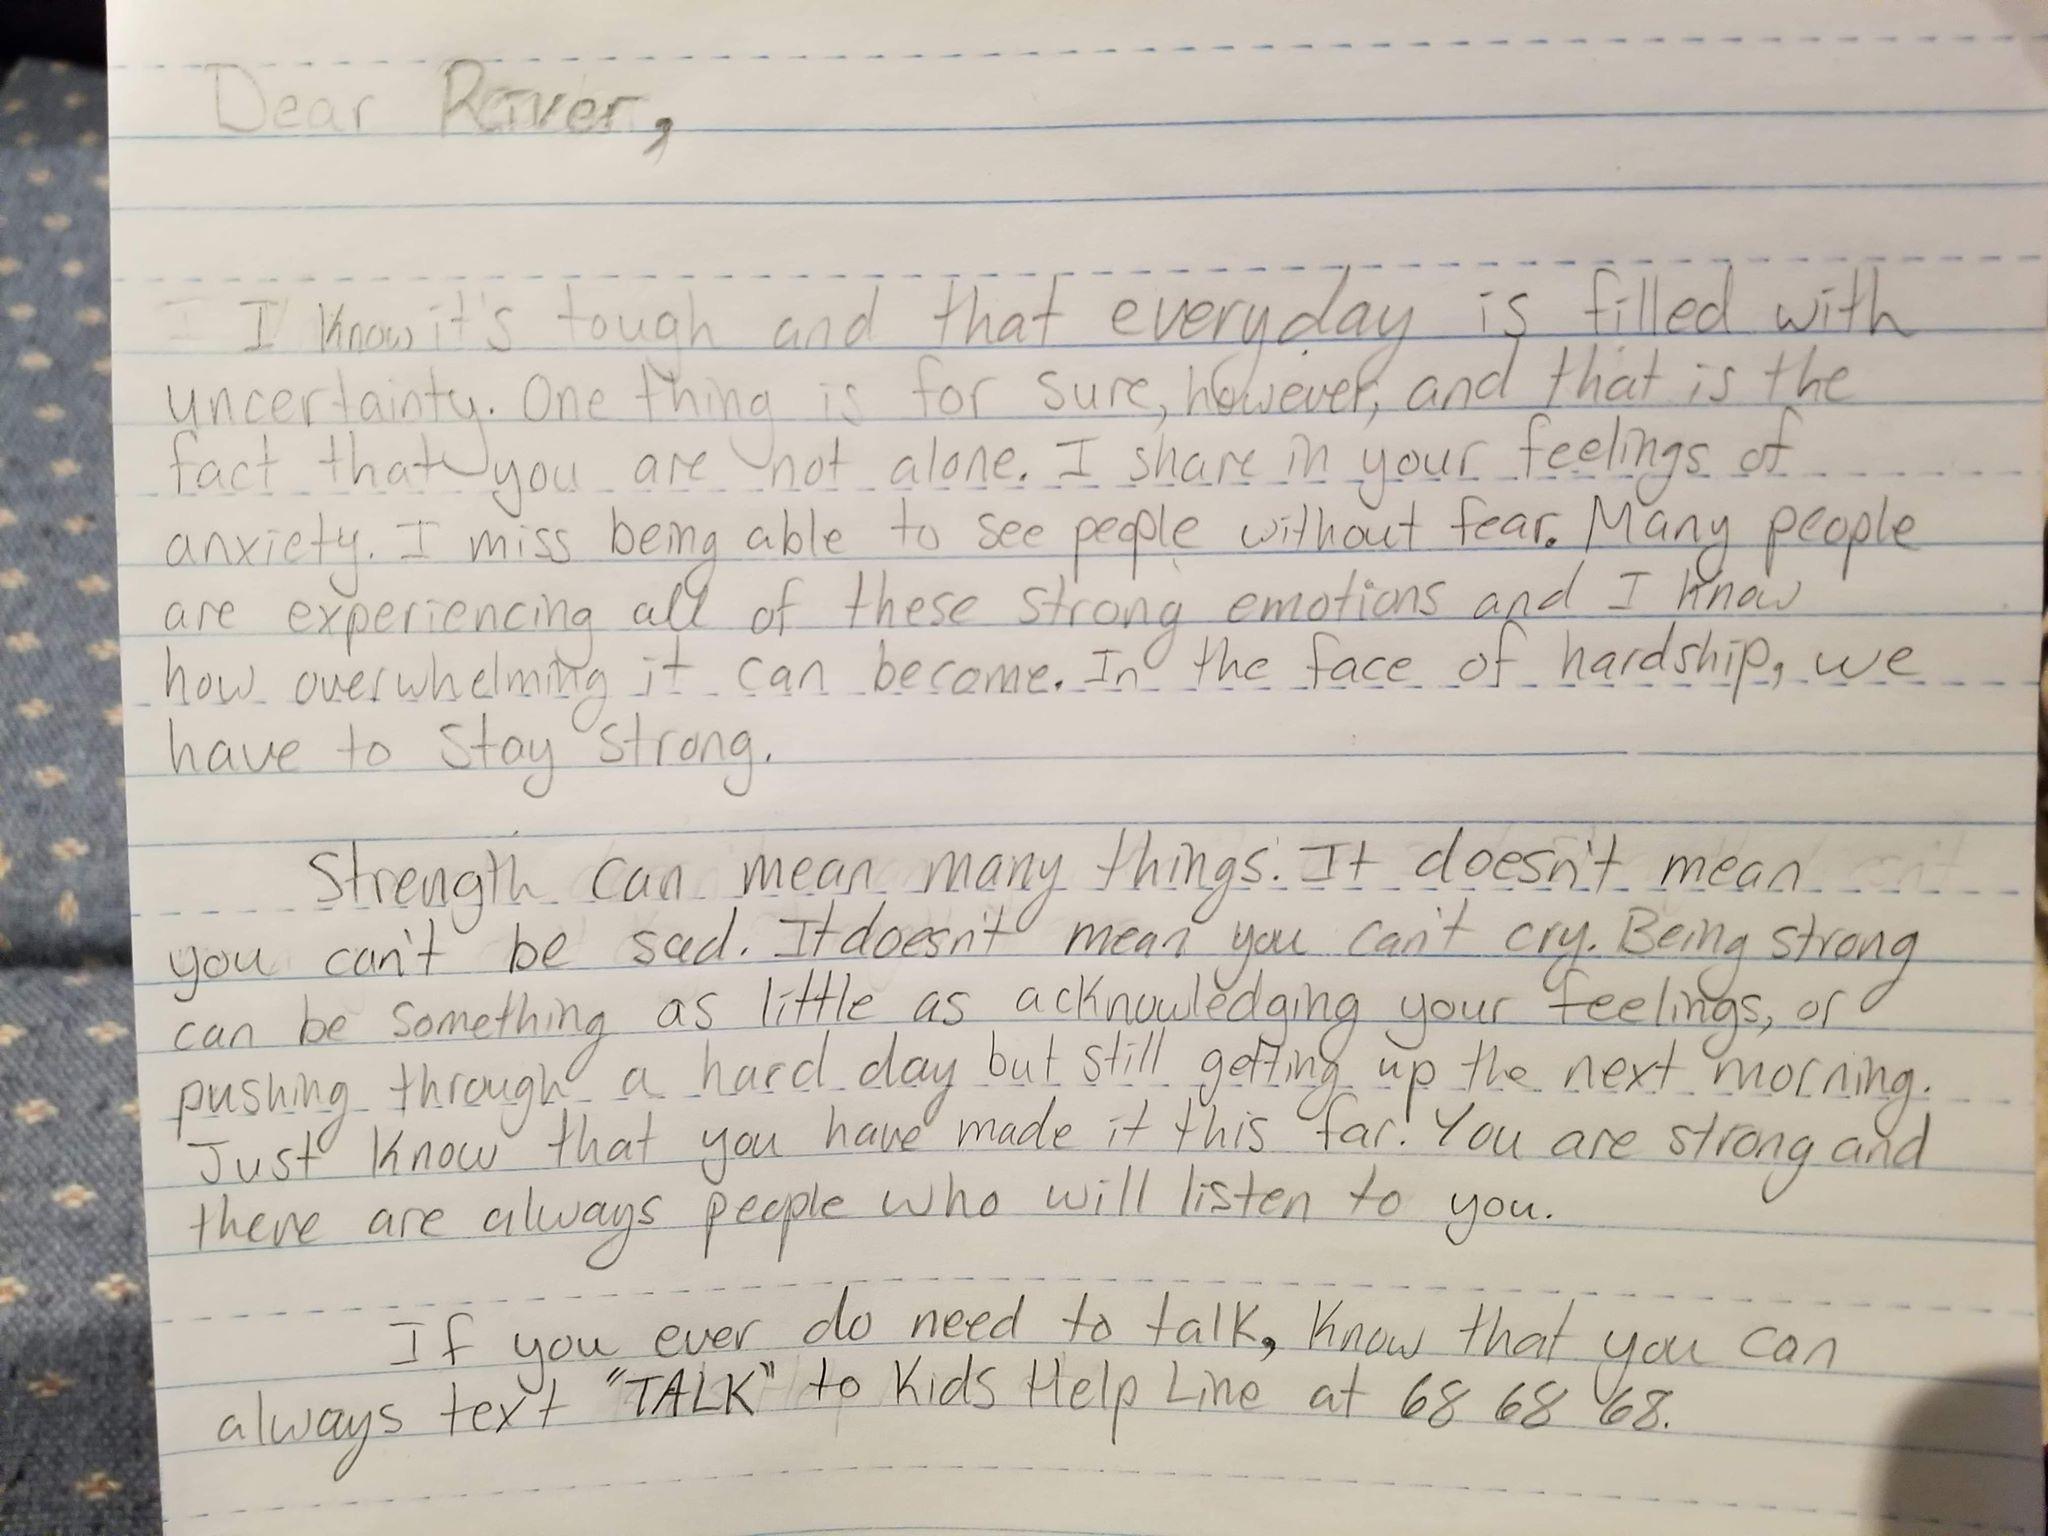 Dear River,
I know it's tough and that everyday is filled with
uncertainty. One thing is for sure, however, and that is the
fact that you are not alone. I share in your feelings of
anxiety. I miss being able to see people without fear. Many people
are experiencing all of these strong emotions and I know
how overwhelming it can become. In the face of hardship, we
have to stay strong.
Strength can mean many things. It doesn't mean
you can't be sad. It doesn't mean you can't cry. Being strong
can be something as little as acknowledging your feelings, or
pushing through a hard day but still getting up the next morning.
Just know that you have made it this far. You are strong and
there are always people who will listen to you.
If you ever do need to talk, know that you can
always text "TALK" to Kids Help Line at 68 68 68.